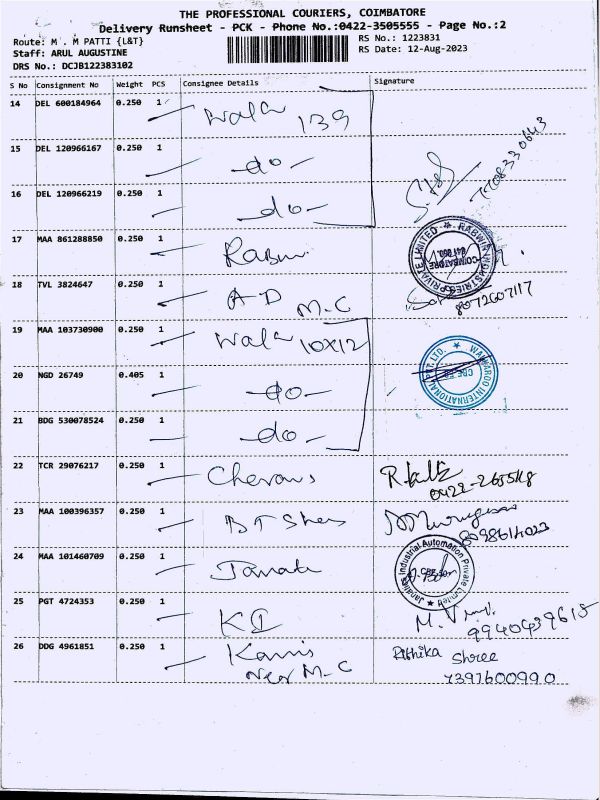 THE PROFESSIONAL COURIERS, COIMBATORE
Delivery Runsheet - PCK - Phone No.:0422-3505555 - Page No.:2
Route: M . M PATTI {L&T}
RS No.: 1223831
Staff: ARUL AUGUSTINE
RS Date: 12-Aug-2023
DRS No.: DCJB122383102
S No Consignment No Weight PCS Consignee Details Signature
14 DEL 600184964 0.250 1 139
15 DEL 120966167 0.250 1 -do-
7708330643
16 DEL 120966219 0.250 1 -do-
17 MAA 861288850 0.250 1
RABWIN INDUSTRIES PRIVATE LIMITED
COIMBATORE
18 TVL 3824647 0.250 1 A D M-C
8072607117
19 MAA 103730900 0.250 1 10x12
20 NGD 26749 0.405 1 -do-
INTERNATIONAL PVT. LTD.
21 BDG 530078524 0.250 1 -do-
22 TCR 29076217 0.250 1
23 MAA 100396357 0.250 1
8098614023
24 MAA 101460709 0.250 1
Industrial Automation Private Limited
25 PGT 4724353 0.250 1
9940439615
26 DDG 4961851 0.250 1
Near M-C
Rithika Shree
7397600990